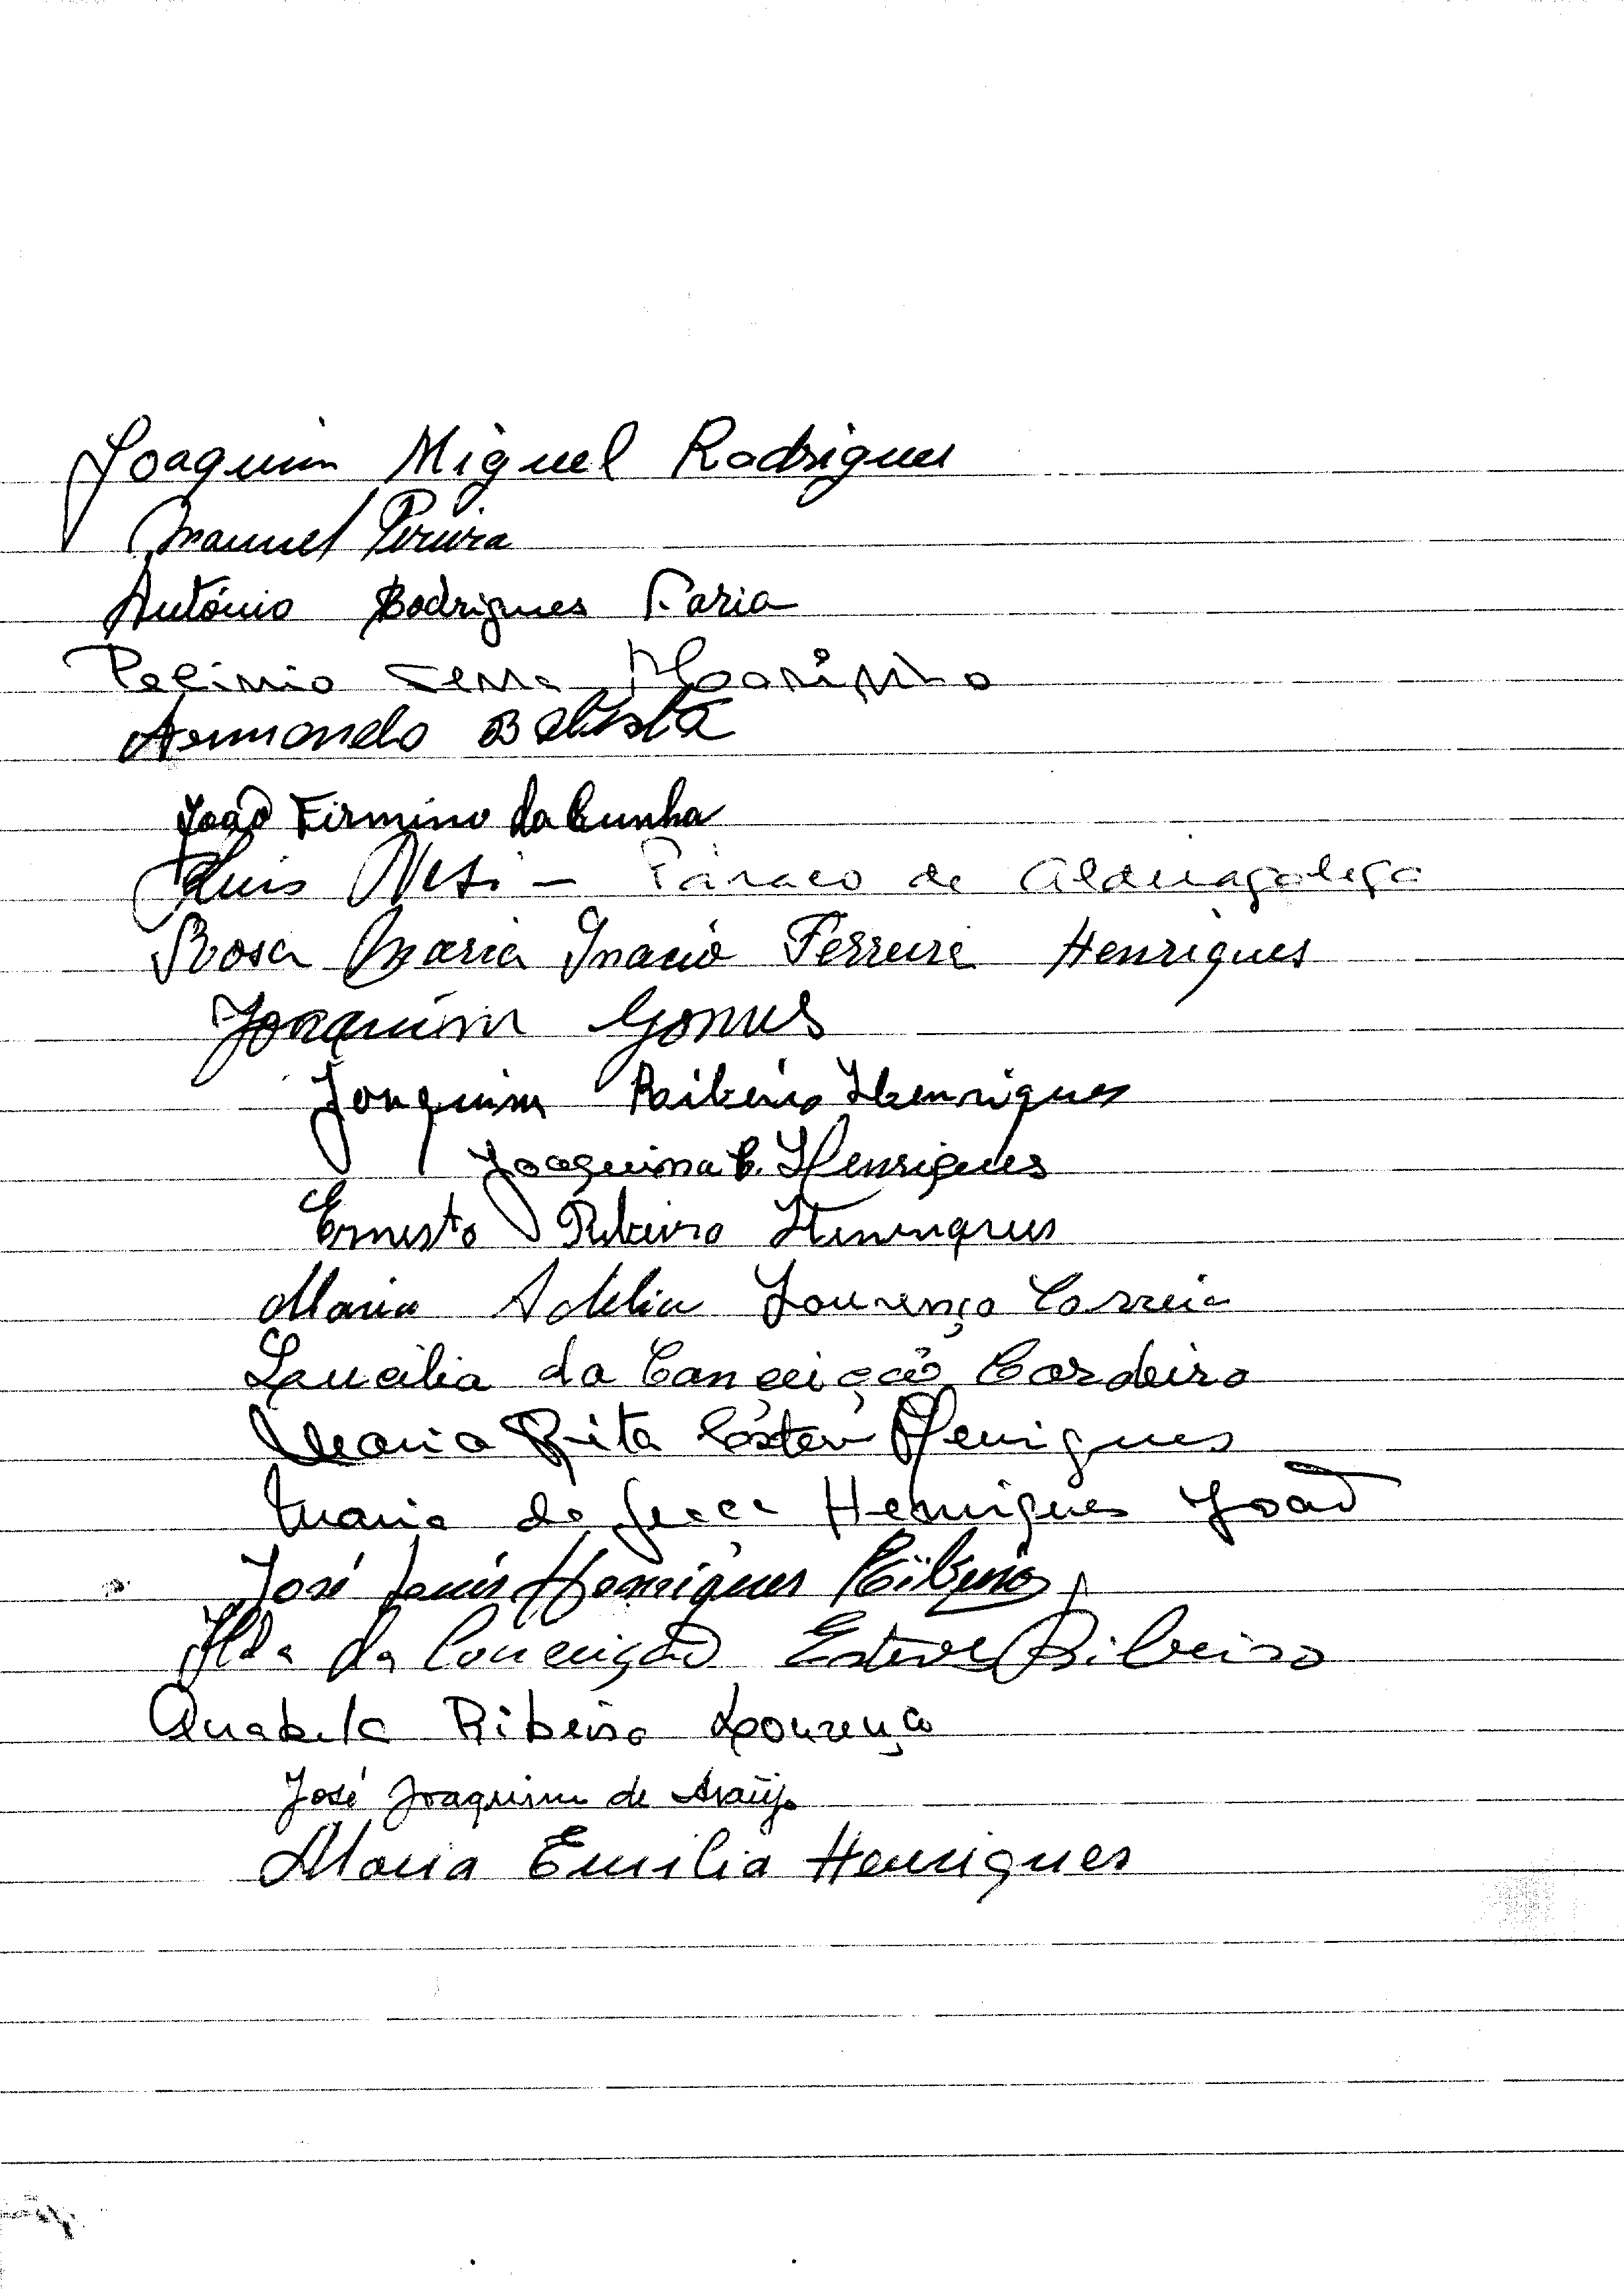 Joaquim Miguel Rodrigues
Manuel Pereira
António Rodrigues Faria
Marinho
Armando Batista
João Firmino da Cunha
Luis - Pároco de Aldeiagalega
Rosa Maria Inacio Ferreira Henriques
Joaquim Gomes
Joaquim Ribeiro Henriques
Joaquina C. Henriques
Ernesto Ribeiro Henriques
Maria Adelia Lourenço Correia
da Conceição Cordeiro
Maria Rita Henriques
Maria da Graça Henriques João
José Luis Henriques Ribeiro
Ilda da Conceição Esteves Ribeiro
Anabela Ribeiro Lourenço
José Joaquim de Araújo
Maria Emilia Henriques